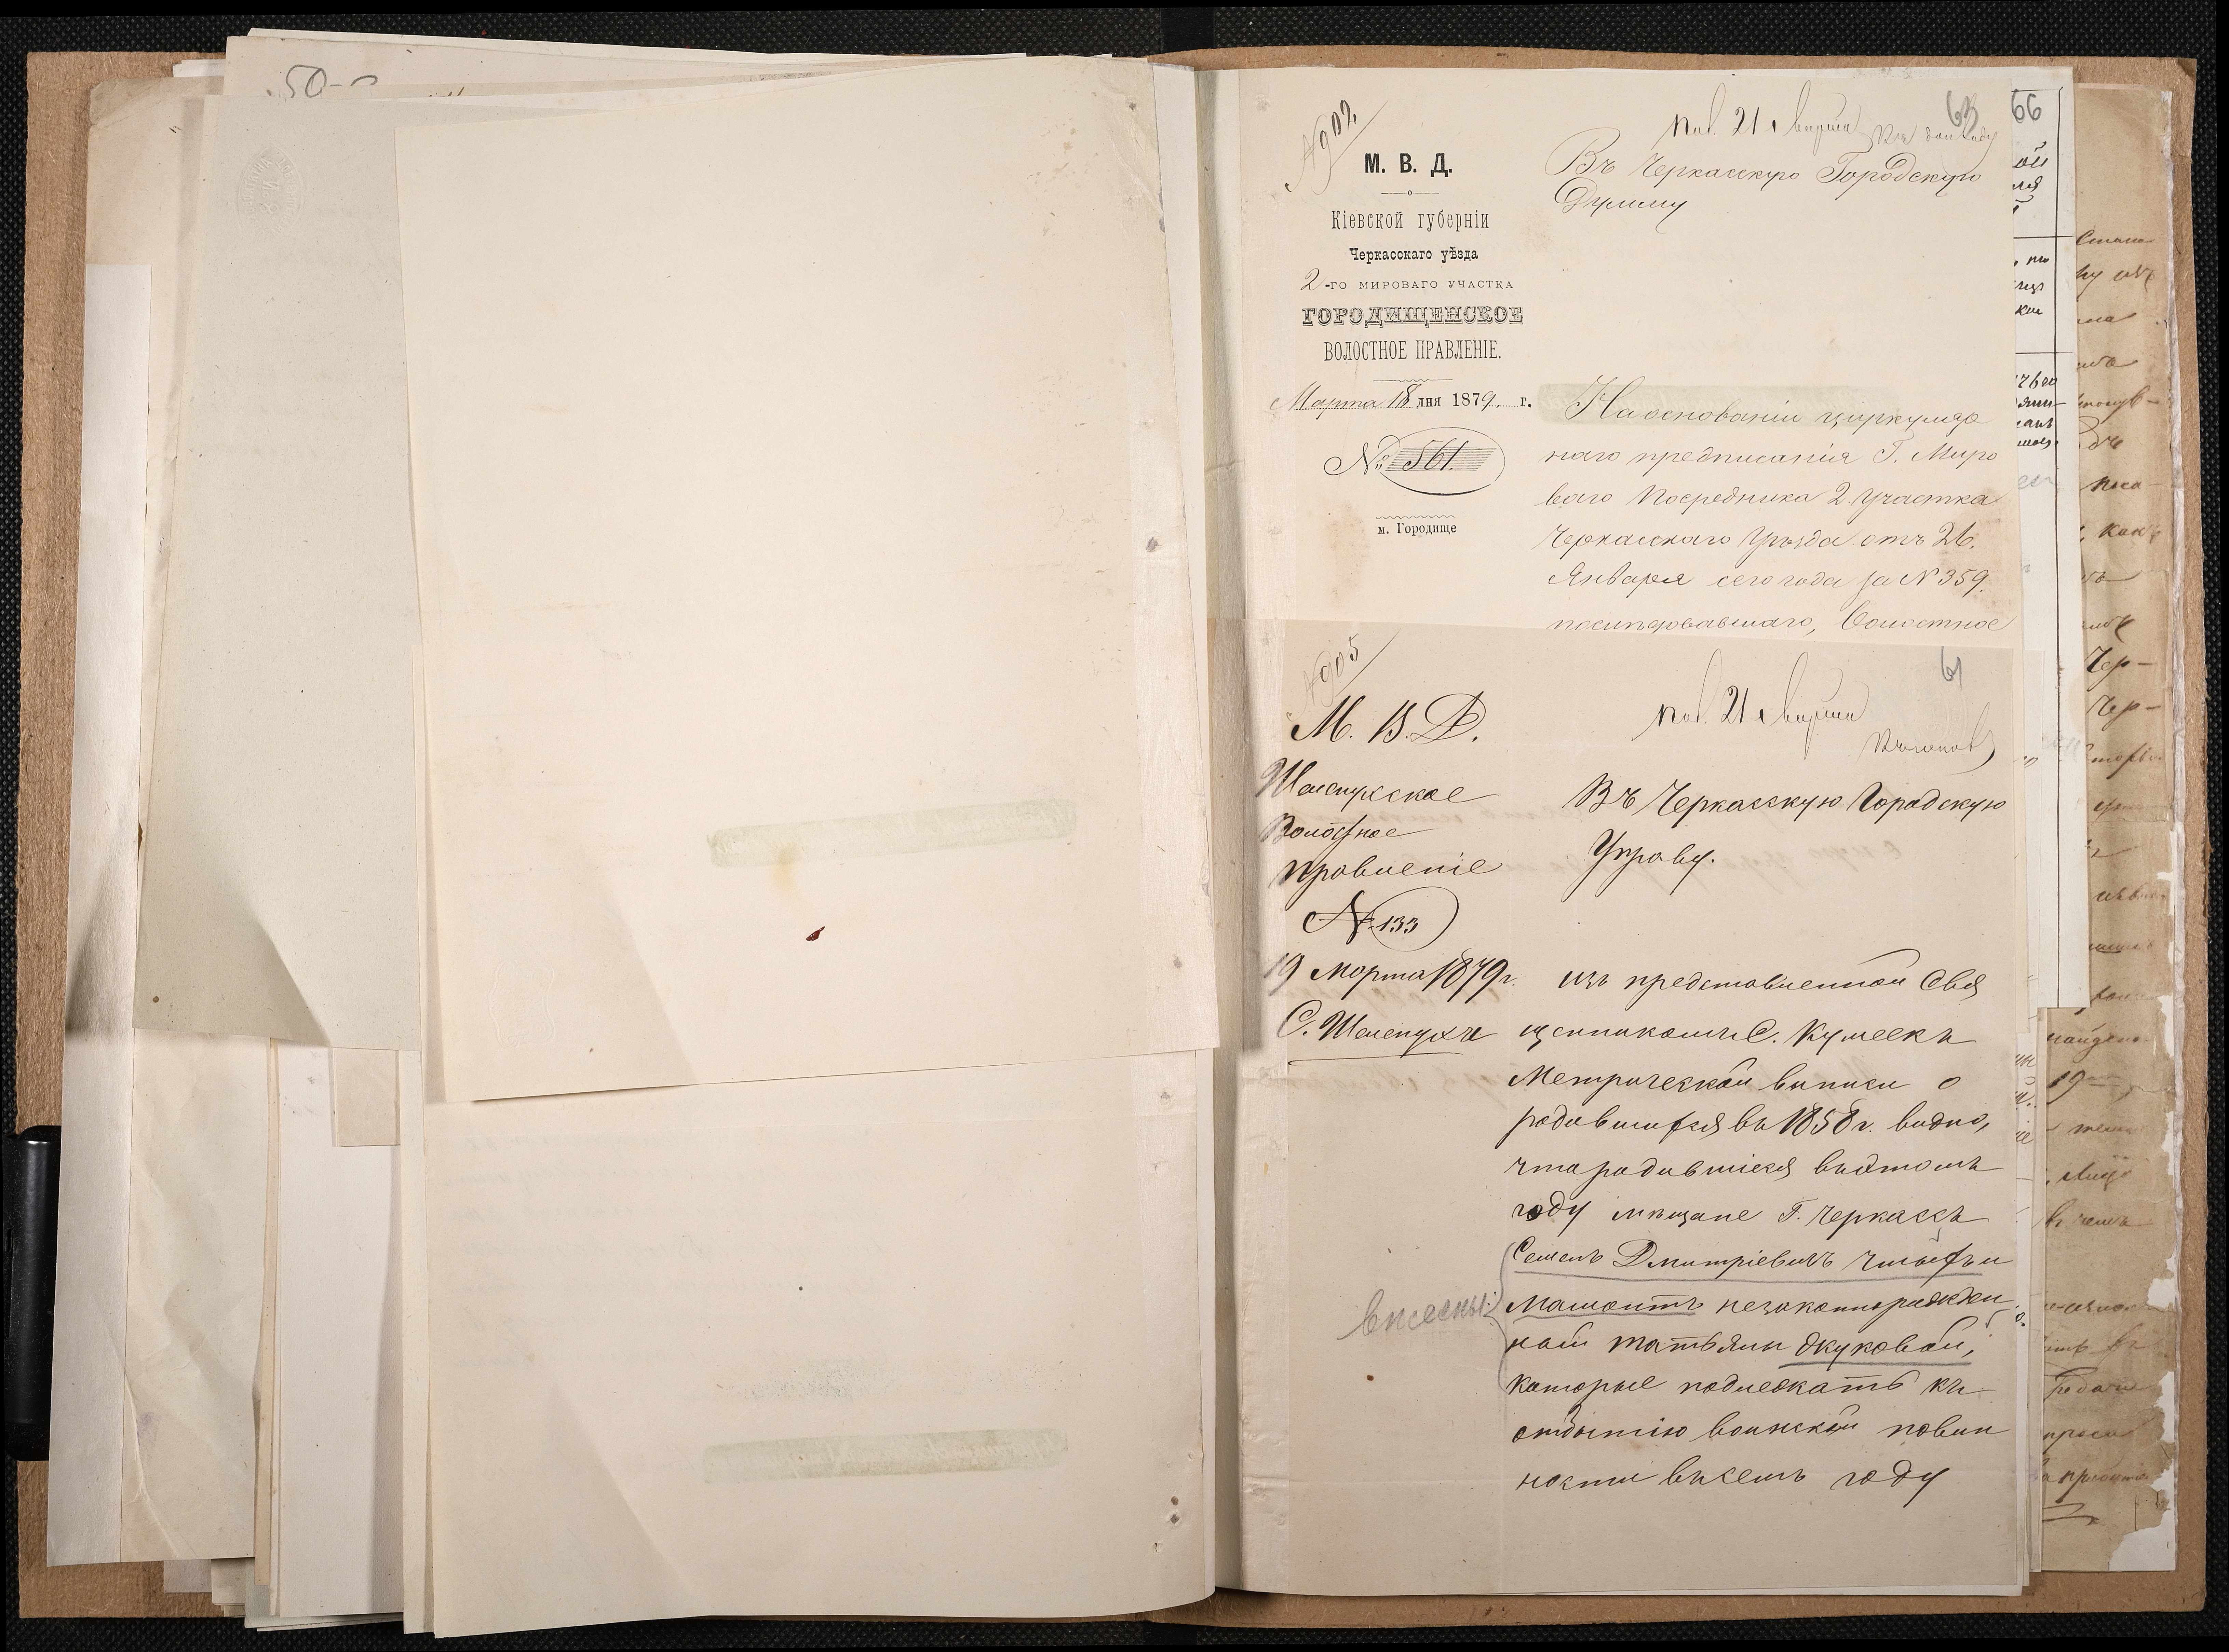 50
№ 902
М. В. Д.
Кіевской губерніи
Черкасскаго уѣзда
2-го мироваго участка
ГОРОДИЩЕНСКОЕ
ВОЛОСТНОЕ ПРАВЛЕНІЕ.
Марта 18 дня 1879 г.
№ 561.
м. Городище
пол. 21 Марта
Къ докладу
63
Въ Черкасскую Городскую
Думу
На основаніи циркуляр
наго предписанія Г. Миро
ваго Посредника 2. Участка
Черкасскаго Уѣзда отъ 26.
Января сего года за N 359.
послѣдовавшаго, Волостное
66
№ 905
М. В. Д.
Шелепухское
Волостное
правленіе
N 133
19 Марта 1879 г.
С. Шелепуха
пол. 21 Марта
61
Въ Черкасскую Городскую
Управу.
изъ представленной Свя
щенникомъ С. Кумеекъ
Метрической выписи о
родившихся въ 1858 г. видно,
что родившіеся въ этомъ
году мѣщане Г. Черкассъ
Семенъ Дмитріевичъ и
Мамонтъ незаконнорожден
ный Татьяны
которые подлежатъ къ
отбытію воинской повин
ности въ семъ году
внесены: